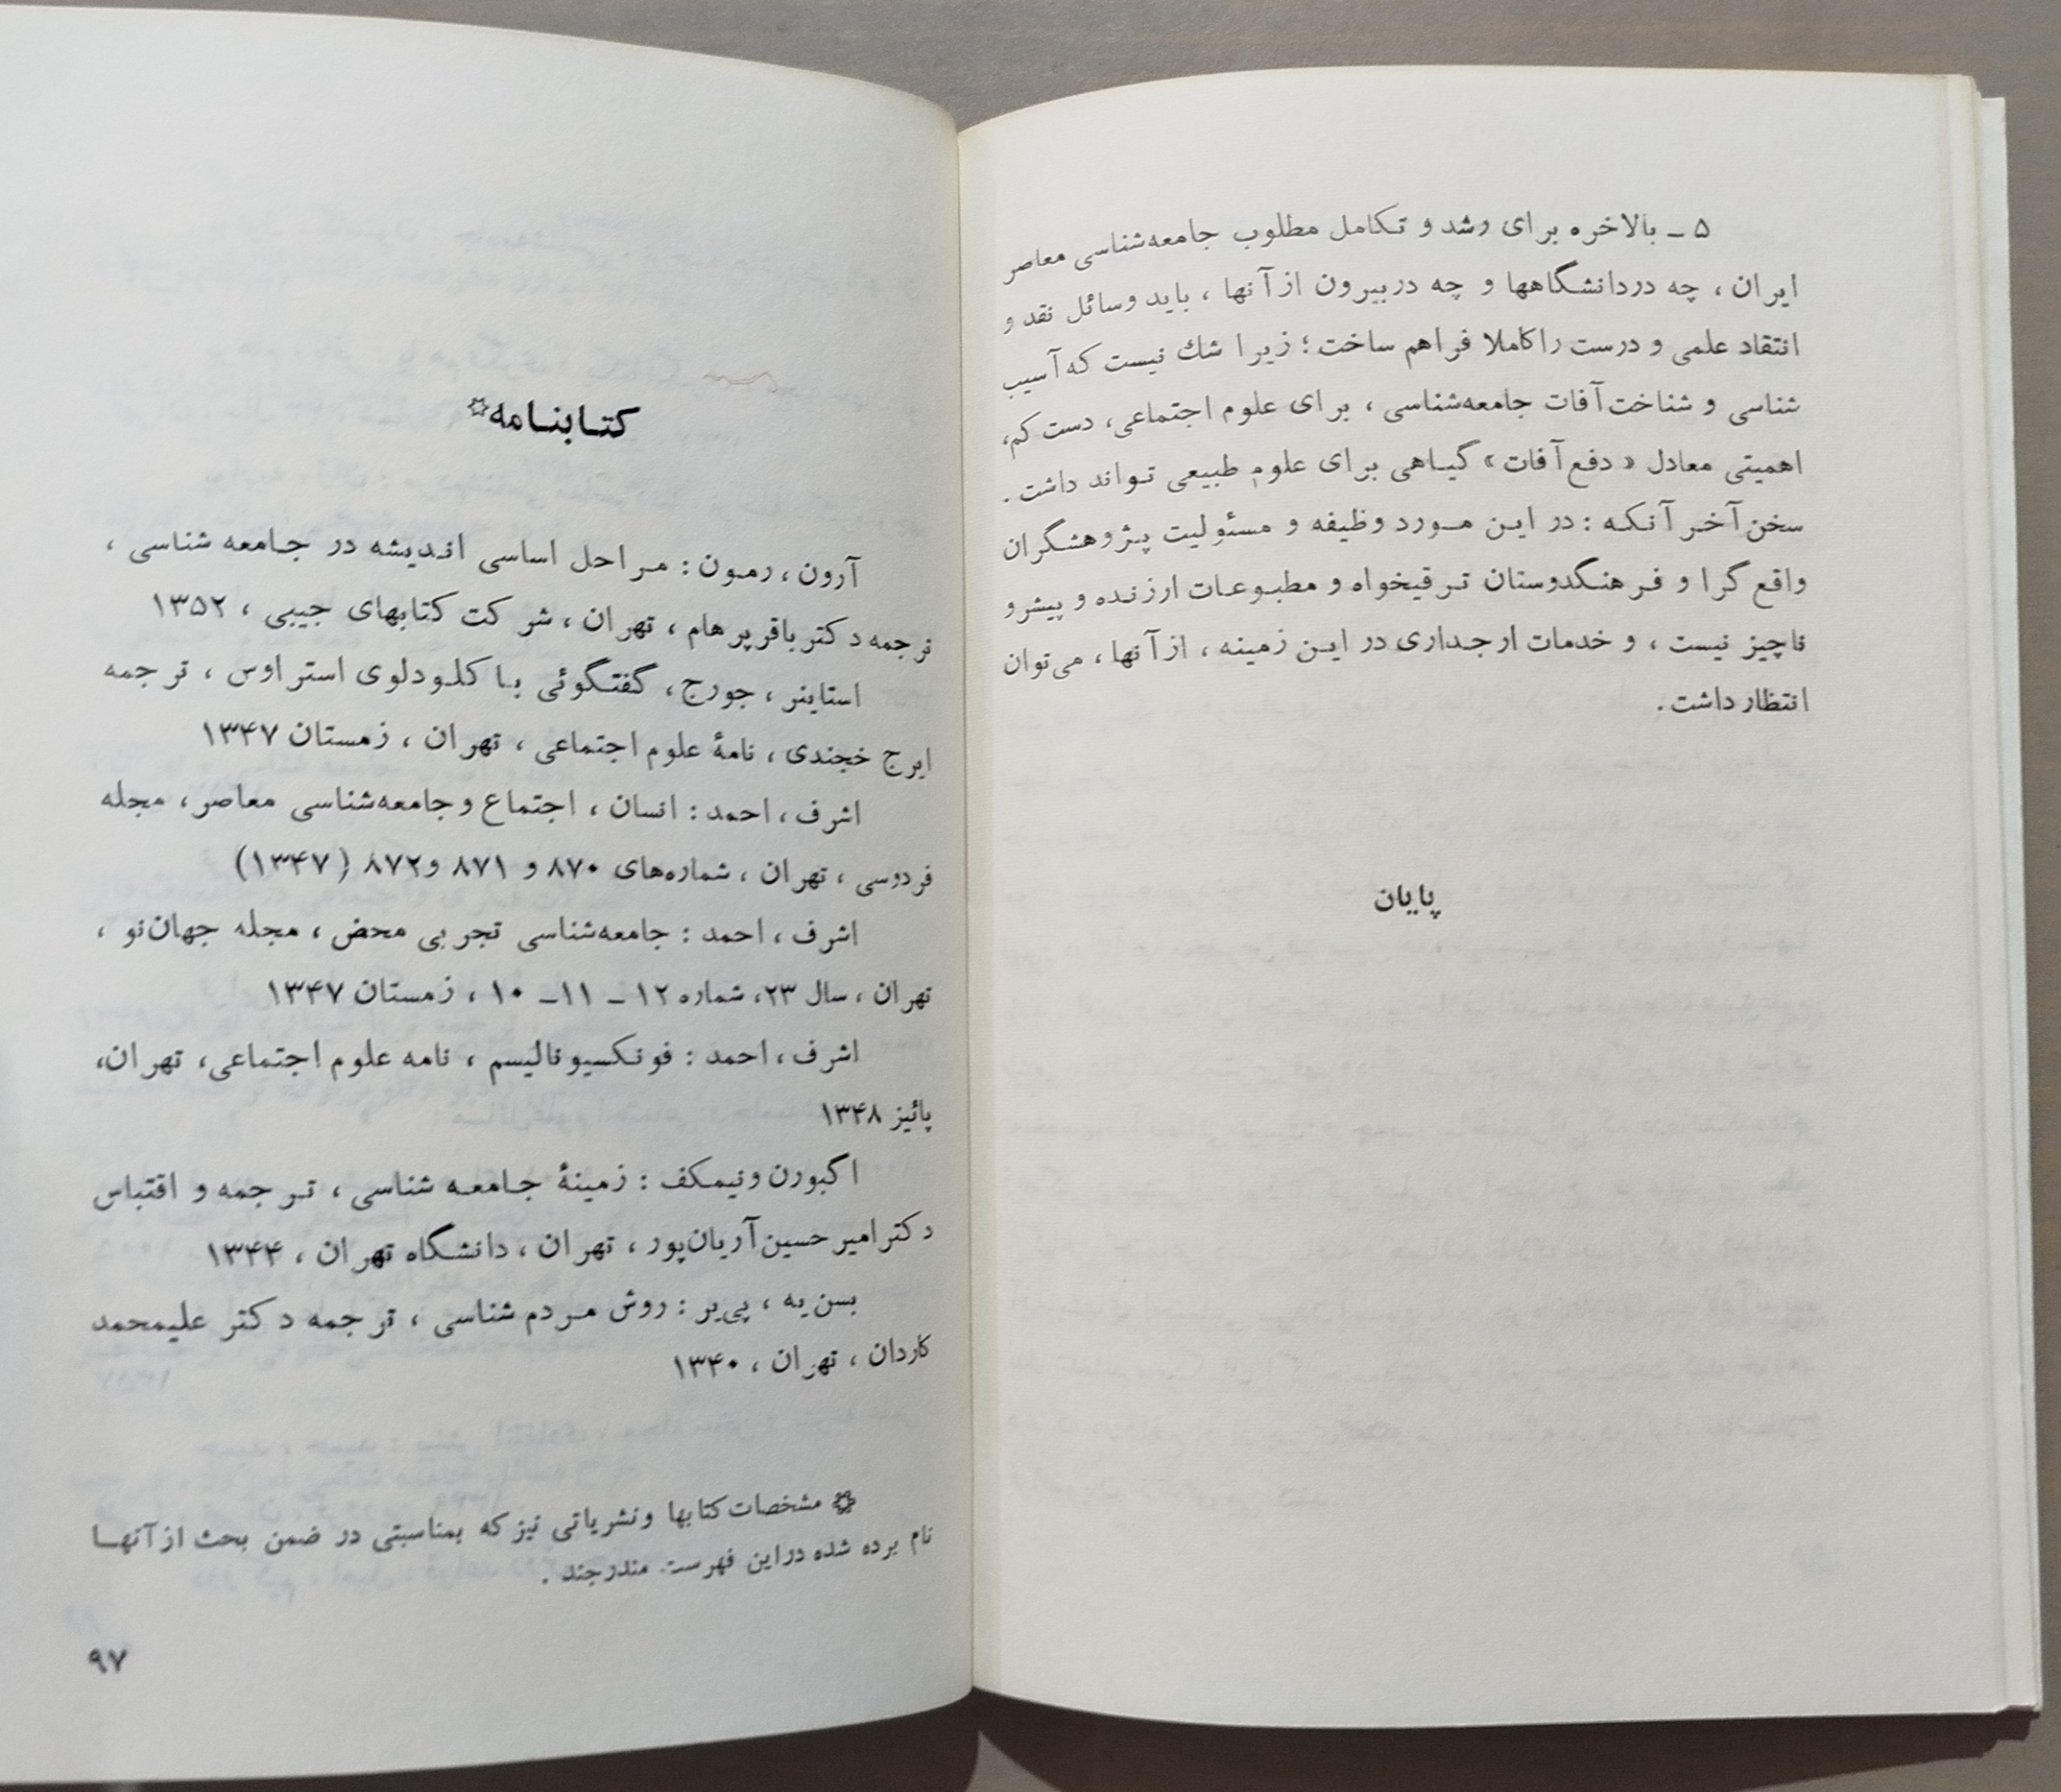 ۵ ـ بالاخره برای رشد و تکامل مطلوب جامعه‌شناسی معاصر
ایران ، چه دردانشگاهها و چه دربیرون ازآنها ، باید وسائل نقد و
انتقاد علمی و درست راکاملا فراهم ساخت ؛ زیرا شك نیست که آسیب
شناسی و شناخت‌آفات جامعه‌شناسی ، برای علوم اجتماعی، دست کم،
اهمیتی معادل « دفع‌آفات» گیاهی برای علوم طبیعی تواند داشت .
سخن‌آخر آنکه : در این مورد وظیفه و مسئولیت پژوهشگران
واقع گرا و فرهنگدوستان ترقیخواه و مطبوعات ارزنده و پیشرو
ناچیز نیست ، و خدمات ارجداری در این زمینه ، ازآنها ، می‌توان
انتظار داشت .
پایان
کتابنامه☼
آرون ، رمون : مراحل اساسی اندیشه در جامعه شناسی ،
ترجمه دکتر باقر پرهام ، تهران ، شرکت کتابهای جیبی ، ۱۳۵۲
استاینر ، جورج، گفتگوئی با کلودلوی استراوس ، ترجمه
ایرج خجندی ، نامهٔ علوم اجتماعی ، تهران ، زمستان ۱۳۴۷
اشرف ، احمد : انسان ، اجتماع و جامعه‌شناسی معاصر ، مجله
فردوسی ، تهران ، شماره‌های ۸۷۰ و ۸۷۱ و۸۷۲ (۱۳۴۷)
اشرف ، احمد : جامعه‌شناسی تجربی محض ، مجله جهان‌نو ،
تهران ، سال ۲۳، شماره ۱۲ ـ ۱۱ـ ۱۰ ، زمستان ۱۳۴۷
اشرف ، احمد : فونکسیونالیسم ، نامه علوم اجتماعی، تهران،
پائیز ۱۳۴۸
اگبورن ونیمکف : زمینهٔ جامعه شناسی ، ترجمه و اقتباس
دکتر امیرحسین‌آریان‌پور ، تهران ، دانشگاه تهران ، ۱۳۴۴
بسن‌یه ، پی‌یر : روش مردم شناسی ، ترجمه دکتر علیمحمد
کاردان ، تهران ، ۱۳۴۰
☼ مشخصات کتابها ونشریاتی نیز که بمناسبتی در ضمن بحث از آنها
نام برده شده دراین فهرست مندرجند .
۹۷